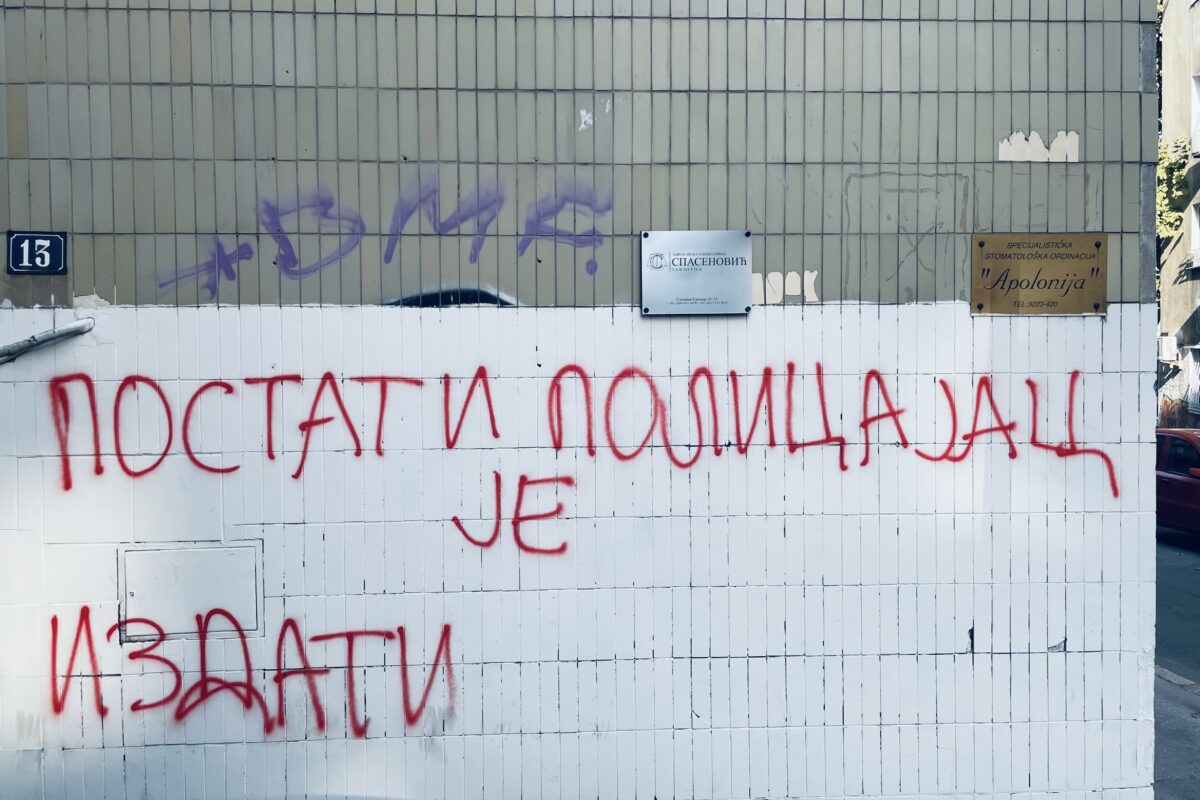 13
DMF
АДВОКАТСКА КАНЦЕЛАРИЈА
СПАСЕНОВИЋ
LAW OFFICE
SPECIJALISTIČKA
STOMATOLOŠKA ORDINACIJA
"Apolonija"
TEL.3223-420
ПОСТАТИ ПОЛИЦАЈАЦ
ЈЕ
ИЗДАТИ